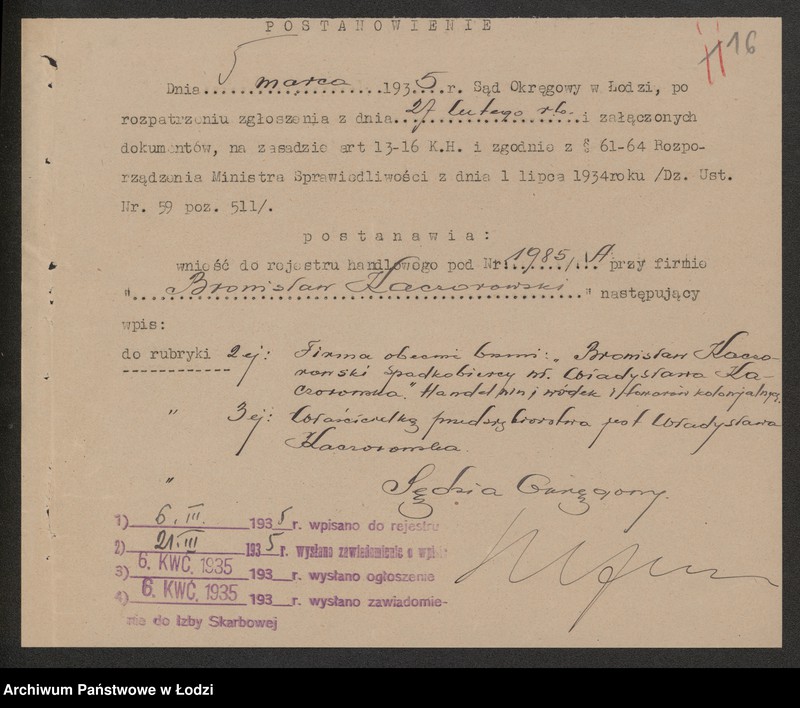 16
POSTANOWIENIE
Dnia 5 marca 1935 r. Sąd Okręgowy w Łodzi, po
rozpatrzeniu zgłoszenia z dnia 27 lutego r.b. i załączonych
dokumentów, na zasadzie art 13-16 K.H. i zgodnie z § 61-64 Rozpo-
rządzenia Ministra Sprawiedliwości z dnia 1 lipca 1934roku /Dz. Ust.
Nr. 59 poz. 511/.
postanawia:
wnieść do rejestru handlowego pod Nr. 1985/A przy firmie
"Bronisław Kaczorowski" następujący
wpis:
do rubryki 2 ej: Firma obecnie brzmi: „Bronisław Kaczo-
rowski Spadkobiercy wł. Władysława Ka-
czorowska." Handel win, wódek i towarów kolonjalnych.
" 3 ej: Właścicielką przedsiębiorstwa jest Władysława
Kaczorowska.
"
Sędzia Okręgowy.
1) 6. III. 1935 r. wpisano do rejestru
2) 21 III 1935 r. wysłano zawiadomienie o wpisie
3) 6. KWC. 1935 193 r. wysłano ogłoszenie
4) 6. KWC. 1935 193 r. wysłano zawiadomie-
nie do Izby Skarbowej
Archiwum Państwowe w Łodzi